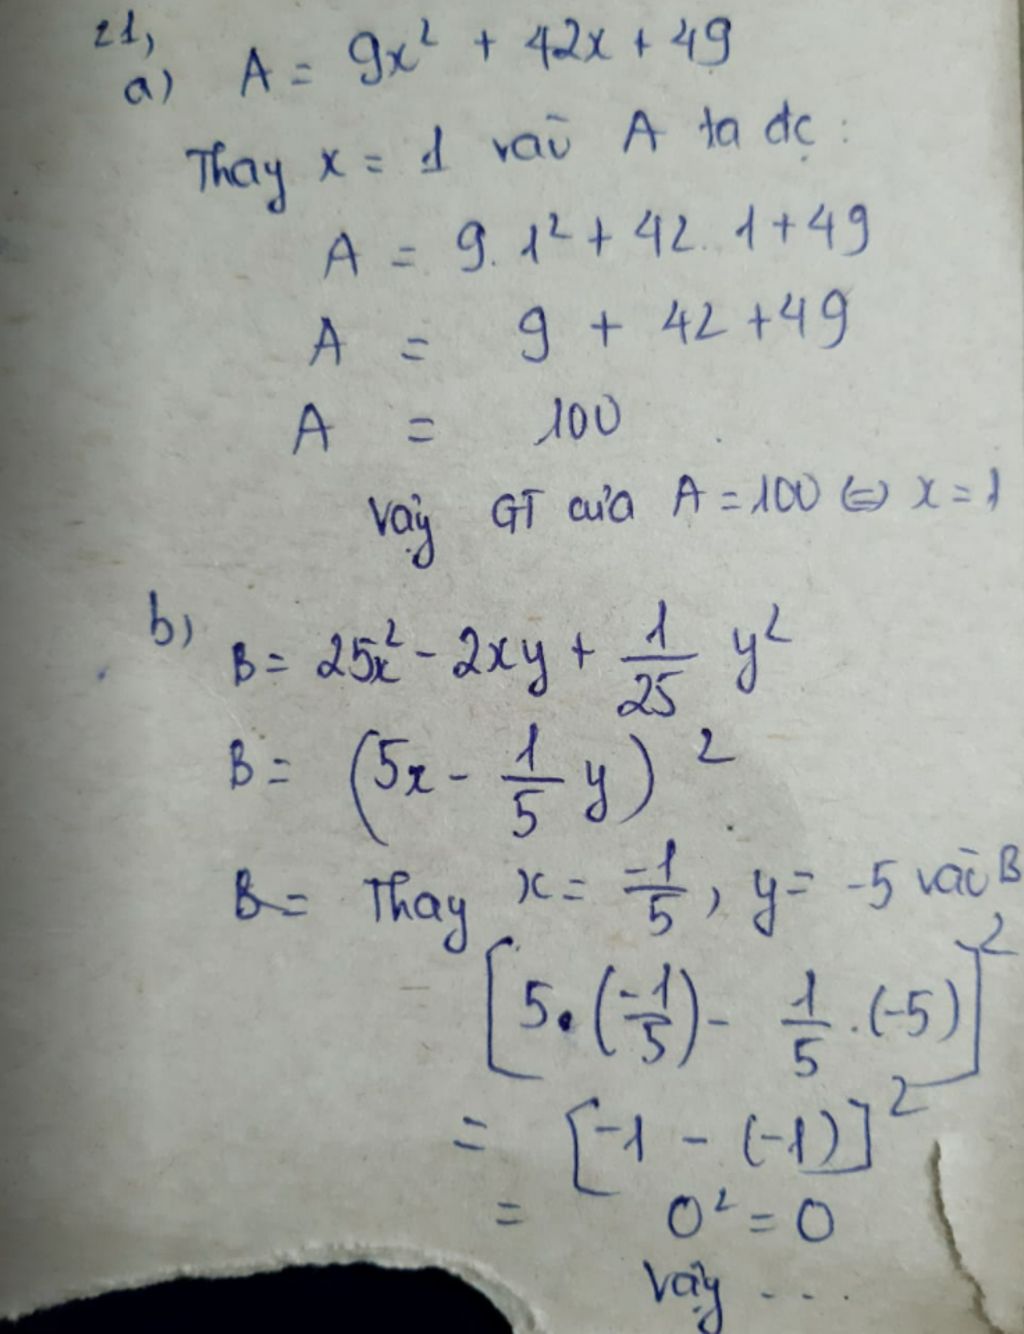 21,
a) A = 9x² + 42x + 49
Thay x = 1 vaū A ta đc :
A = 9. 1² + 42. 1 + 49
A = 9 + 42 + 49
A = 100
Vậy GT của A = 100 ⇔ x = 1
b)
B = 25x² - 2xy + 1/25 y²
B = (5x - 1/5 y)²
B = Thay x = -1/5, y = -5 vaū B
[5.(-1/5) - 1/5 .(-5)]²
= [-1 - (-1)]²
= 0² = 0
Vậy ...